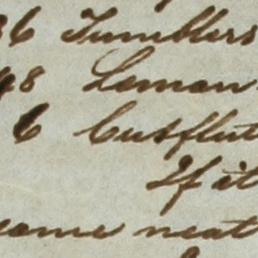 36 Tumblers
48 Lemon
6 Cut flut
If it
came neat